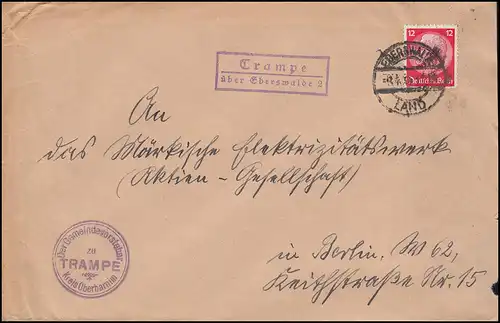 Trampe
über Eberswalde 2
12 12
Deutsches Reich
EBERSWALDE
LAND
An
das Märkische Elektrizitätswerk
(Aktien-Gesellschaft)
in Berlin. W 62,
Keithstraße Nr. 15
Der Gemeindevorsteher
zu
TRAMPE
Kreis Oberbarnim